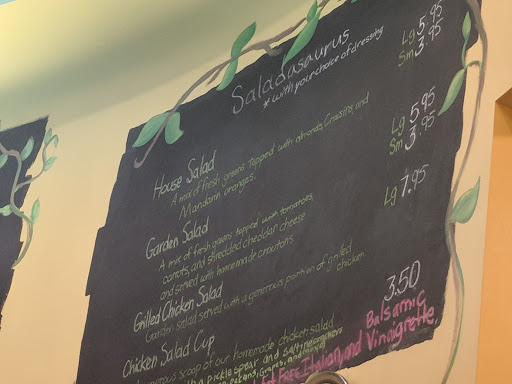 Saladasaurus
* with your choice of dressing
Lg 5.95
Sm 3.95
House Salad
A mix of fresh greens topped with almonds, Craisins, and
Mandarin oranges.
Lg 5.95
Sm 3.95
Garden Salad
A mix of fresh greens topped with tomatoes,
carrots, and shredded cheddar cheese
and served with homemade croutons
Lg 7.95
Grilled Chicken Salad
Garden salad served with a generous portion of grilled
chicken
3.50
Chicken Salad Cup
scoop of our homemade chicken salad
pickle spear and saltine crackers
pecans, Grapes, and
Balsamic
Fat Free Italian, and Vinaigrette